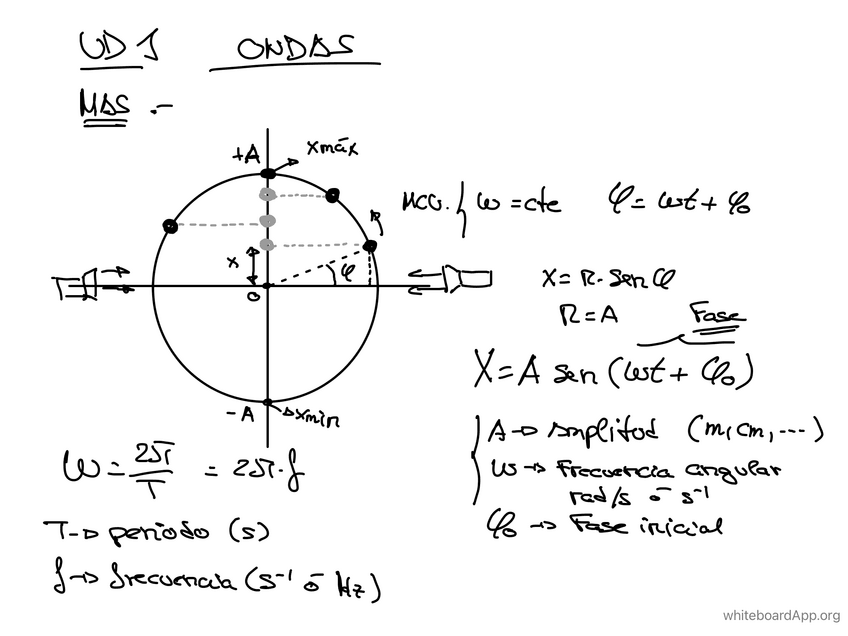 UD 1 ONDAS
MAS .-
+A xmáx
MCU. { ω = cte φ = ωt + φ₀
R
x
φ
O
X = R · sen φ
R = A
Fase
X = A sen (ωt + φ₀)
-A xmin
A → Amplitud (m, cm, ...)
ω → Frecuencia angular
rad/s ó s⁻¹
φ₀ → Fase inicial
ω = 2π/T = 2π · f
T → periodo (s)
f → frecuencia (s⁻¹ ó Hz)
whiteboardApp.org